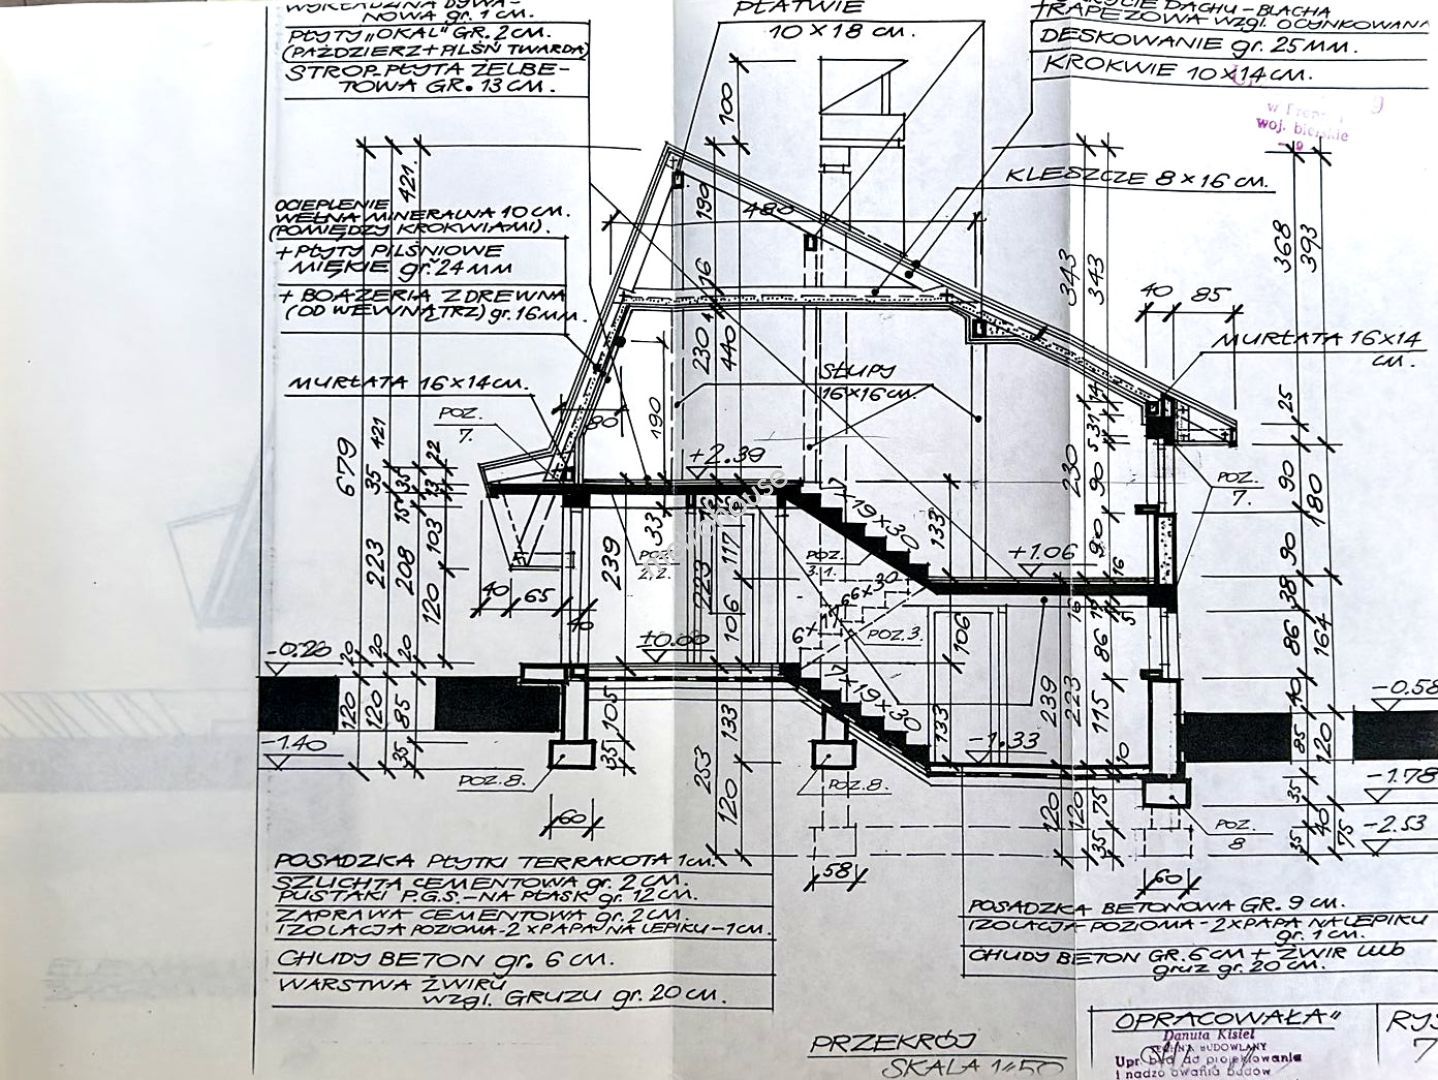 NOWA gr. 1 CM.
PŁYTY „OKAL" GR. 2 CM.
(PAŹDZIERZ + PILŚŃ TWARDA)
STROP-PŁYTA ŻELBE-
TOWA GR. 13 CM.
PŁATWIE
10 x 18 CM.
DACHU - BLACHA
TRAPEZOWA WZGL. OCYNKOWANA
DESKOWANIE gr. 25 MM.
KROKWIE 10x14 CM.
woj. bielskie
KLESZCZE 8 x 16 CM.
OCIEPLENIE
WEŁNA MINERALNA 10 CM.
(POMIĘDZY KROKWIAMI).
+ PŁYTY PILŚNIOWE
MIĘKIE gr. 24 MM
+ BOAZERIA Z DREWNA
(OD WEWNĄTRZ) gr. 16 MM.
MURŁATA 16x14 CM.
POZ.
7.
MURŁATA 16x14
CM.
SŁUPY
16x16 CM.
POZ.
7.
100
421.
190
480
16
343
343
368
393
40
85
230
440
190
80
14
31
5
25
679
421
35
35
22
13
15
223
208
103
120
+2.39
33
7x19x30
133
230
90
90
90
180
90
+1.06
16
239
POZ.
2.2.
223
117
106
POZ.
3.1.
POZ. 3.
106
86
38
86
164
40
65
40
-0.20
20
20
20
±0.00
7x19x30
120
120
85
35
-1.40
105
35
133
253
120
133
-1.33
239
223
115
10
120
120
75
35
-0.58
85
120
35
40
35
75
-1.78
-2.53
POZ. 8.
POZ. 8.
POZ.
8
60
58
60
nowohouse
POSADZKA PŁYTKI TERRAKOTA 1 CM.
SZLICHTA CEMENTOWA gr. 2 CM.
PUSTAKI P.G.S. - NA PŁASK gr. 12 CM.
ZAPRAWA CEMENTOWA gr. 2 CM.
IZOLACJA POZIOMA - 2 x PAPA NA LEPIKU - 1 CM.
CHUDY BETON gr. 6 CM.
WARSTWA ŻWIRU
wzgl. GRUZU gr. 20 CM.
POSADZKA BETONOWA GR. 9 CM.
IZOLACJA POZIOMA - 2xPAPA NA LEPIKU
gr. 1 CM.
CHUDY BETON GR. 6 CM + ŻWIR LUB
gruz gr. 20 CM.
PRZEKRÓJ
SKALA 1:50
OPRACOWAŁA"
Danuta Kisiel
BUDOWLANY
Upr. bud. do projektowania
i nadzorowania budów
RYS
7